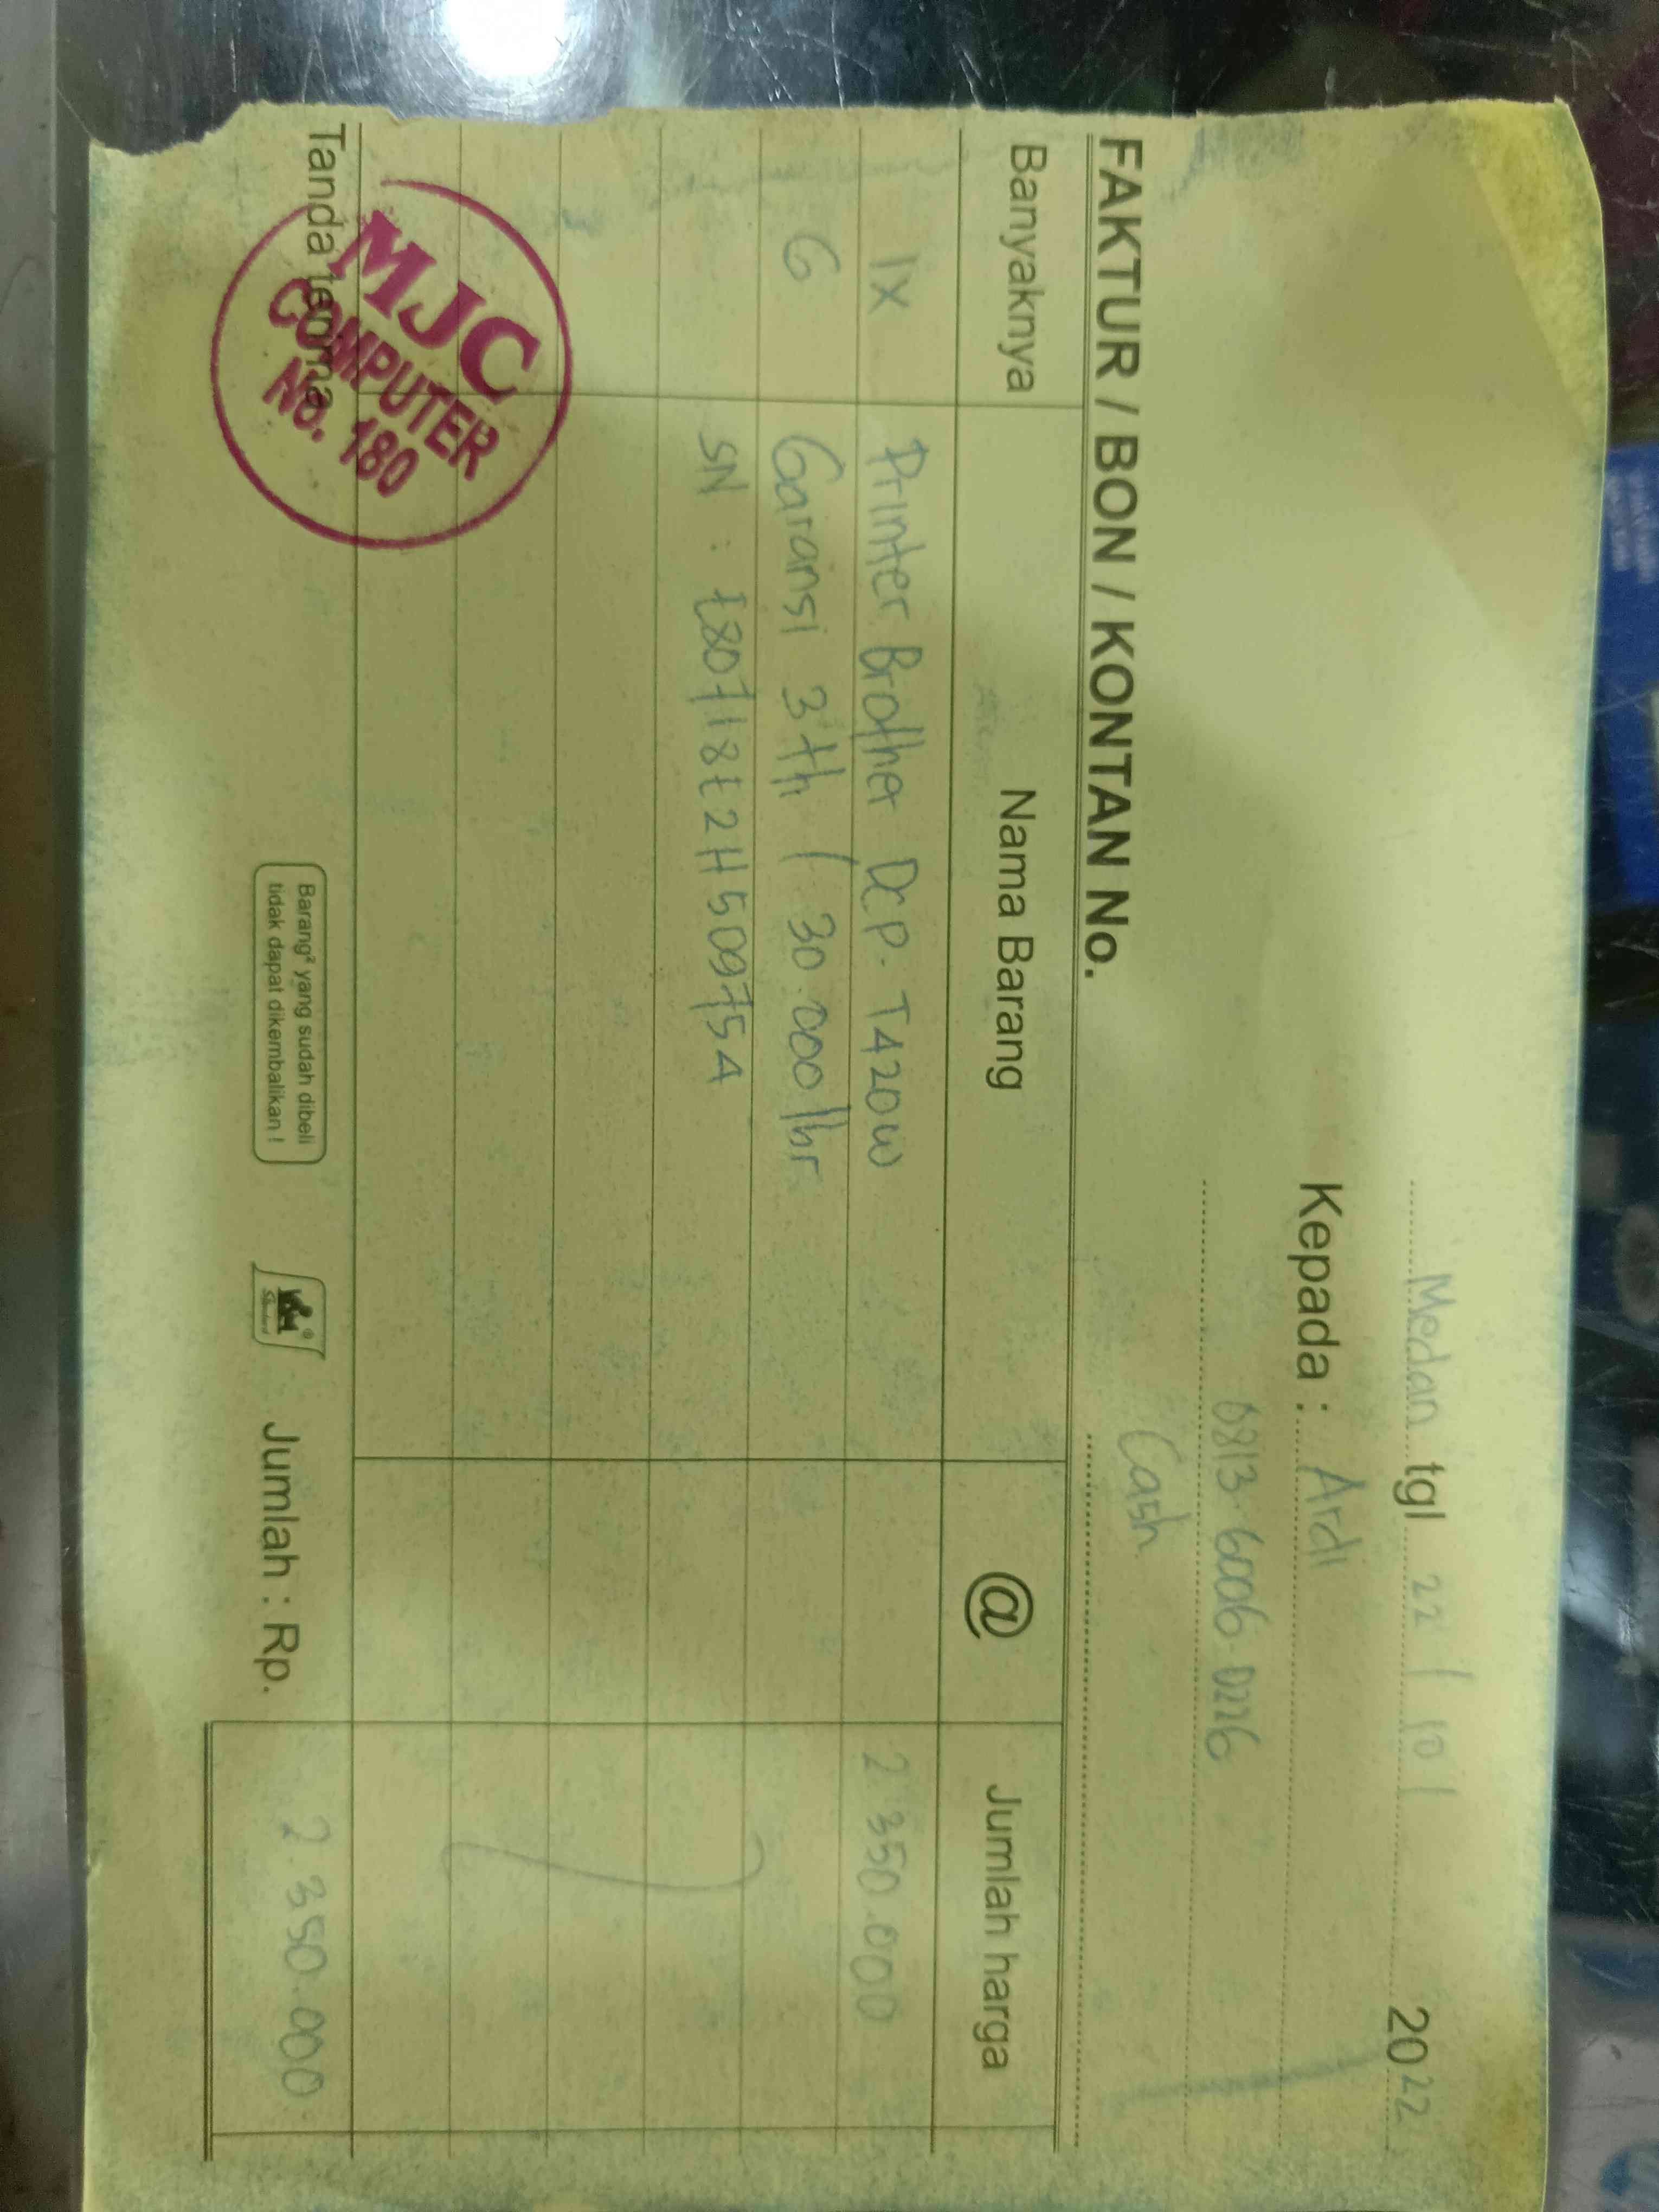 Medan tgl 22 / 10 / 2022
Kepada : Ardi
0813.6006.0226
Cash
FAKTUR / BON / KONTAN No.
Banyaknya Nama Barang @ Jumlah harga
1X Printer Brother DCP-T420W 2.350.000
G Garansi 3th / 30.000 lbr
SN : E80718E2H509754
Tanda terima
MJC
COMPUTER
No. 180
Barang² yang sudah dibeli
tidak dapat dikembalikan !
Jumlah : Rp. 2.350.000